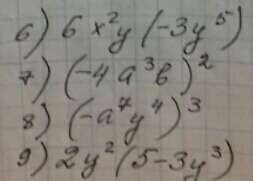 6) 6x²y(-3y⁵)
7) (-4a³b)²
8) (-a⁷y⁴)³
9) 2y²(5-3y³)